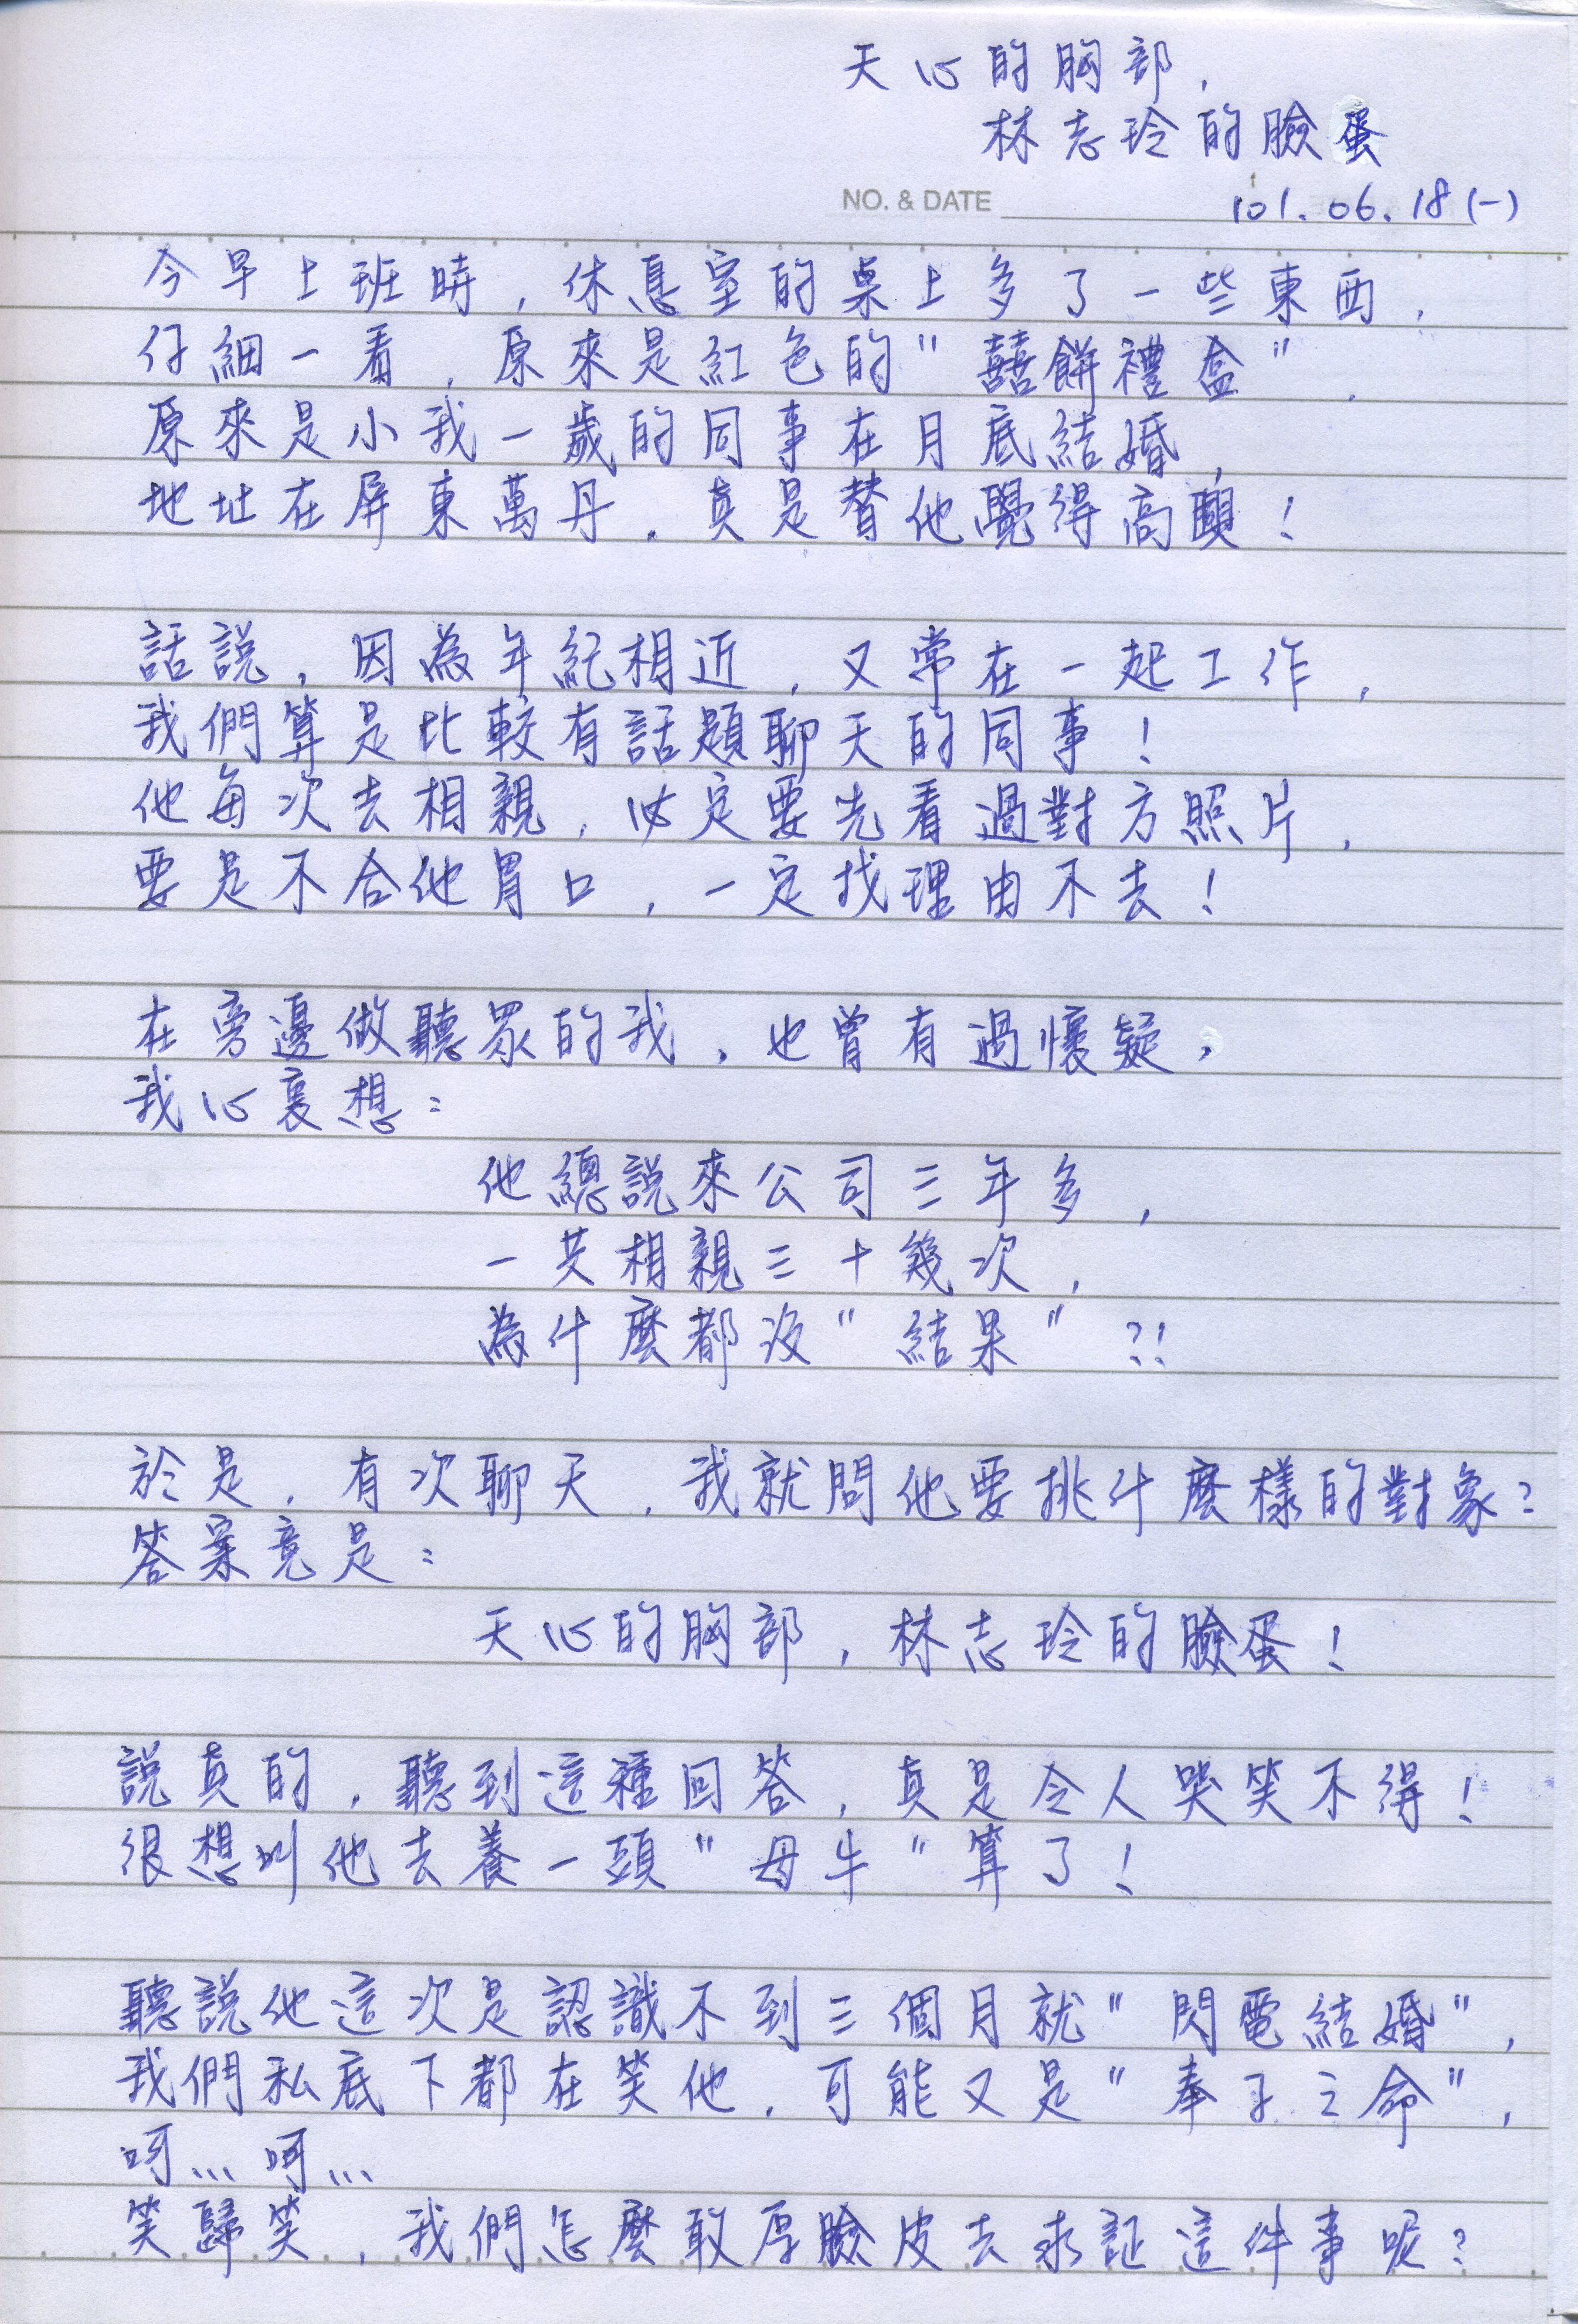 天心的胸部,
林志玲的臉蛋
NO. & DATE 101.06.18(一)
今早上班時,休息室的桌上多了一些東西,
仔細一看,原來是紅色的"囍餅禮盒",
原來是小我一歲的同事在月底結婚,
地址在屏東萬丹。真是替他覺得高興!
話說,因為年紀相近,又常在一起工作,
我們算是比較有話題聊天的同事!
他每次去相親,必定要先看過對方照片,
要是不合他胃口,一定找理由不去!
在旁邊做聽眾的我,也曾有過懷疑,
我心裏想:
他總說來公司三年多,
一共相親三十幾次,
為什麼都沒"結果"?!
於是,有次聊天,我就問他要挑什麼樣的對象?
答案竟是:
天心的胸部,林志玲的臉蛋!
說真的,聽到這種回答,真是令人哭笑不得!
很想叫他去養一頭"母牛"算了!
聽說他這次是認識不到三個月就"閃電結婚",
我們私底下都在笑他,可能又是"奉子之命",
呵...呵...
笑歸笑,我們怎麼敢厚臉皮去求証這件事呢?